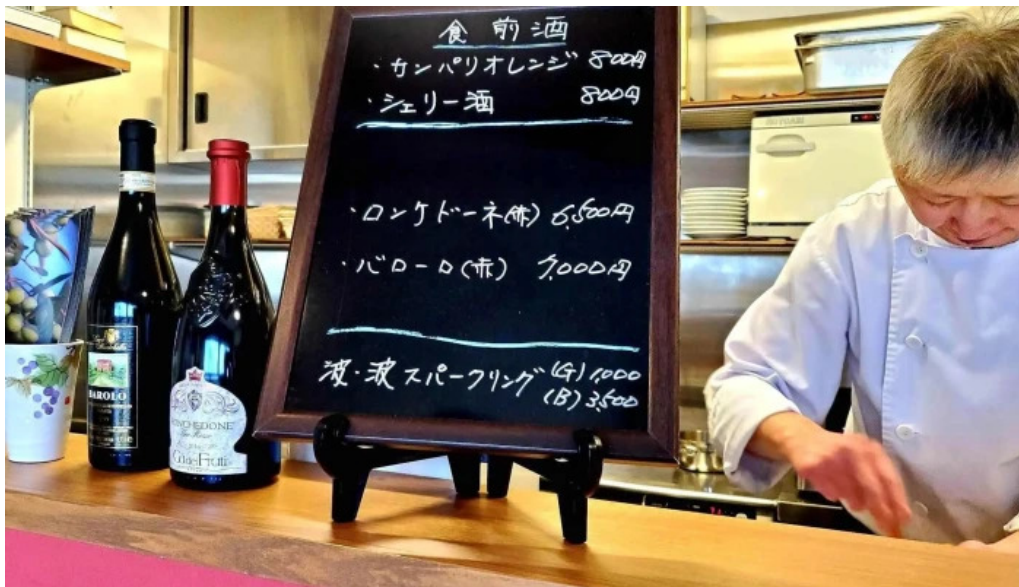 食前酒
・カンパリオレンジ 800円
・シェリー酒 800円
・ロンケドーネ(赤) 6,500円
・バローロ(赤) 7,000円
波・波スパークリング (G) 1,000
(B) 3,500
BAROLO
RONCHEDONE
Ca dei Frati